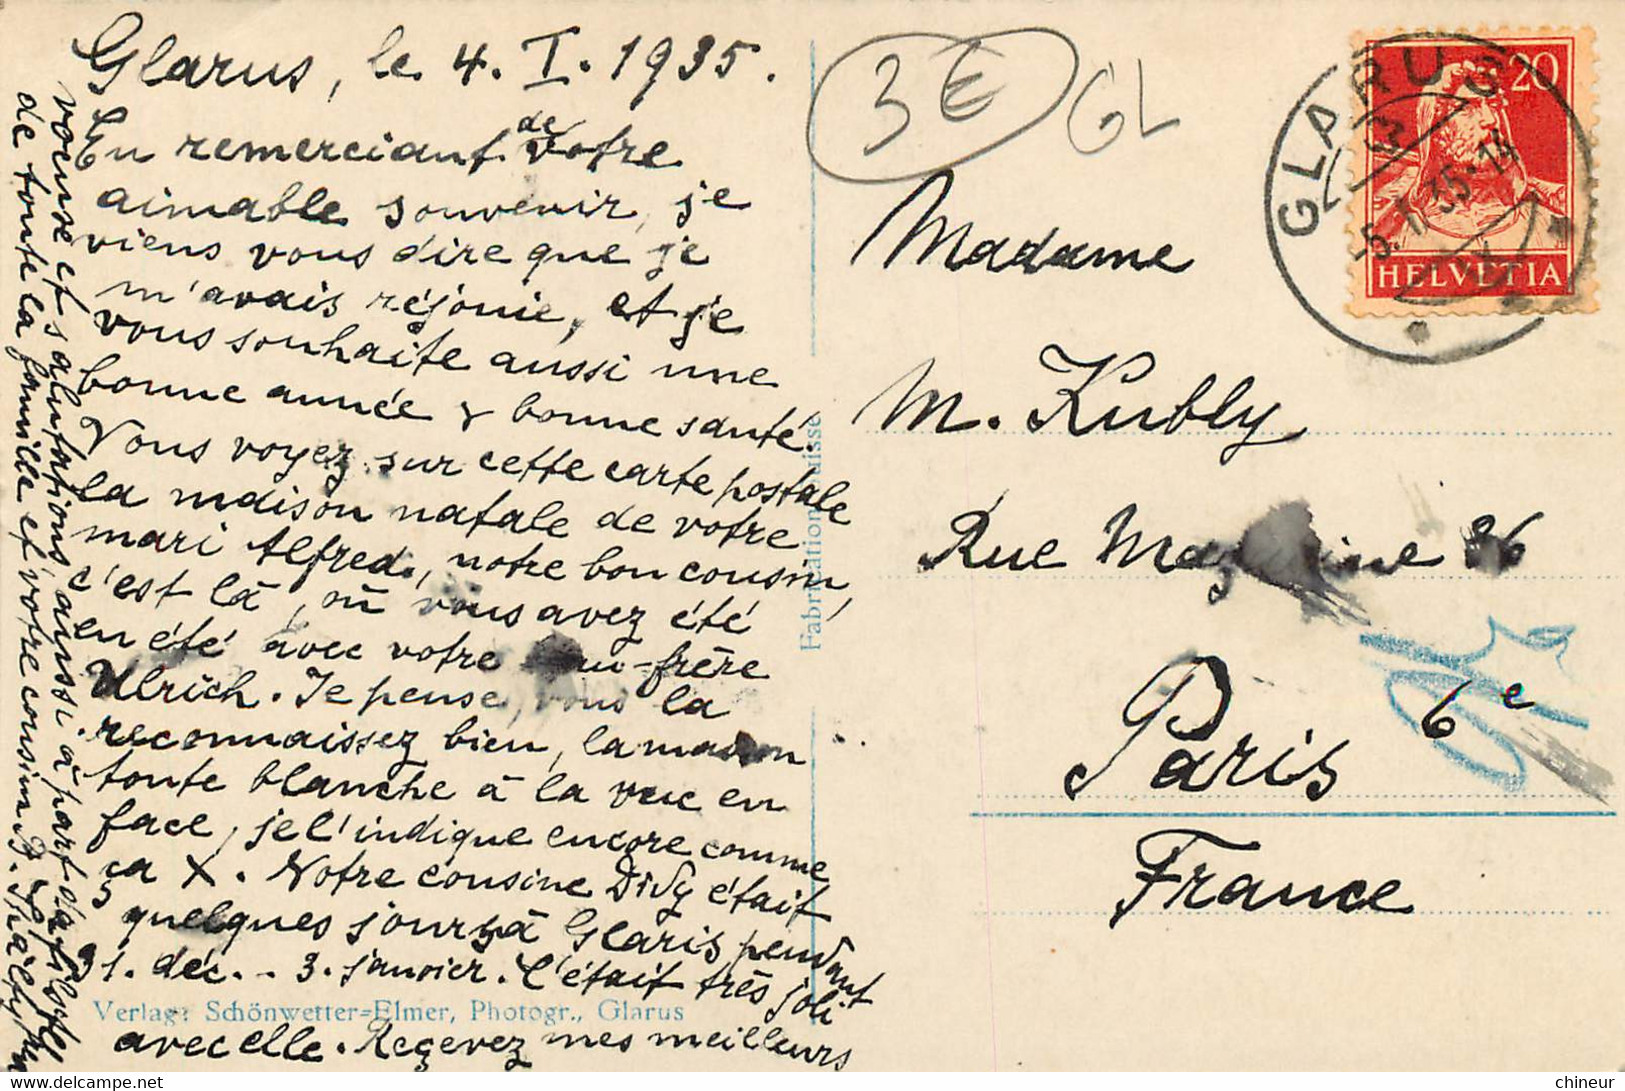 Glarus, le 4. I. 1935.
En remerciant de votre
aimable souvenir, je
viens vous dire que je
m'avais réjouie, et je
vous souhaite aussi une
bonne année & bonne santé.
Vous voyez sur cette carte postale
la maison natale de votre
mari Alfred, notre bon cousin,
c'est là, où vous avez été
en été avec votre beau-frère
Ulrich. Je pense, vous la
reconnaissez bien, la maison
toute blanche à la vue en
face, je l'indique encore comme
ça X. Notre cousine Didy était
quelques jours à Glaris pendant
31. déc. - 3. janvier. C'était très joli
avec elle. Reçevez mes meilleurs
voeuse et salutations, aussi à part
de toute la famille et votre cousin
3 €
GL
Madame
M. Kubly
Rue 36
Paris 6e
France
GLARUS
5. I. 35. 14
20
HELVETIA
Fabrication Suisse
Verlag: Schönwetter=Elmer, Photogr., Glarus
chineur